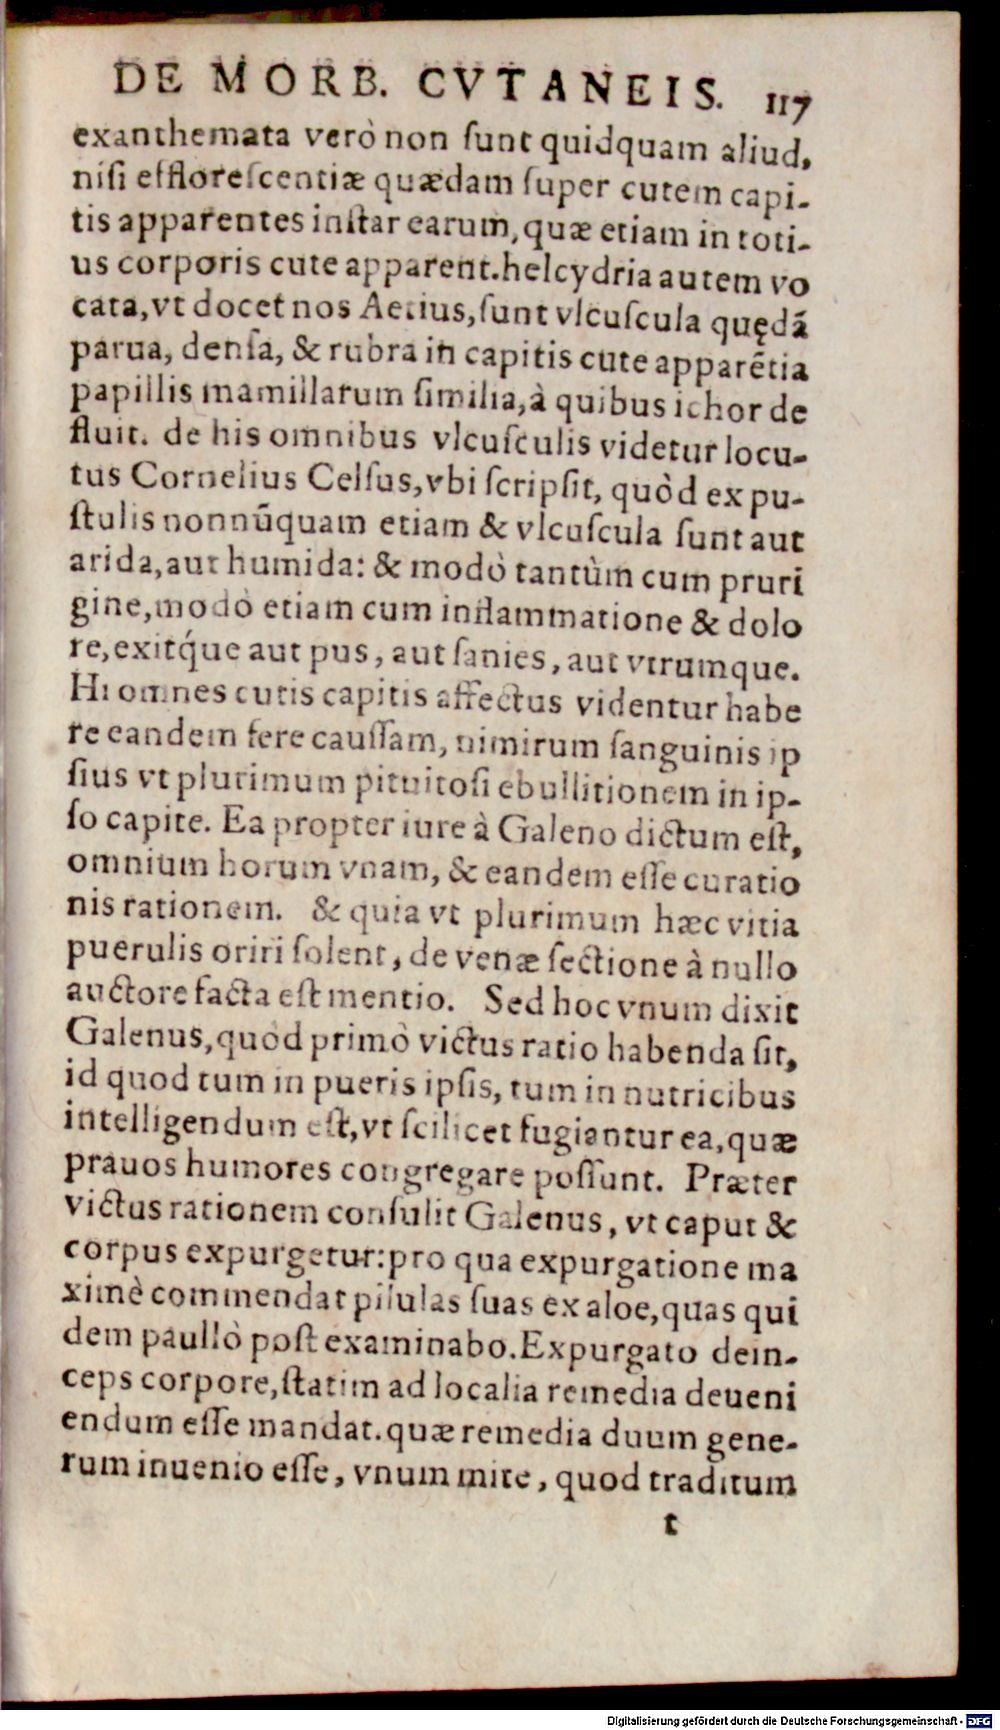 DE MORB. CVTANEIS. 117
exanthemata verò non ſunt quidquam aliud,
niſi effloreſcentiæ quædam ſuper cutem capi-
tis apparentes inſtar earum, quæ etiam in toti-
us corporis cute apparent. helcydria autem vo
cata, vt docet nos Aetius, ſunt vlcuſcula quędã
parua, denſa, & rubra in capitis cute apparẽtia
papillis mamillarum ſimilia, à quibus ichor de
fluit. de his omnibus vlcuſculis videtur locu-
tus Cornelius Celſus, vbi ſcripſit, quòd ex pu-
ſtulis nonnũquam etiam & vlcuſcula ſunt aut
arida, aut humida: & modò tantùm cum pruri
gine, modò etiam cum inflammatione & dolo
re, exitq́ue aut pus, aut ſanies, aut vtrumque.
Hi omnes cutis capitis affectus videntur habe
re eandem fere cauſſam, nimirum ſanguinis ip
ſius vt plurimum pituitoſi ebullitionem in ip-
ſo capite. Ea propter iure à Galeno dictum eſt,
omnium horum vnam, & eandem eſſe curatio
nis rationem. & quia vt plurimum hæc vitia
puerulis oriri ſolent, de venæ ſectione à nullo
auctore facta eſt mentio. Sed hoc vnum dixit
Galenus, quòd primò victus ratio habenda ſit,
id quod tum in pueris ipſis, tum in nutricibus
intelligendum eſt, vt ſcilicet fugiantur ea, quæ
prauos humores congregare poſſunt. Præter
victus rationem conſulit Galenus, vt caput &
corpus expurgetur: pro qua expurgatione ma
ximè commendat pilulas ſuas ex aloe, quas qui
dem paullò poſt examinabo. Expurgato dein-
ceps corpore, ſtatim ad localia remedia deueni
endum eſſe mandat. quæ remedia duum gene-
rum inuenio eſſe, vnum mite, quod traditum
t
Digitalisierung gefördert durch die Deutsche Forschungsgemeinschaft - DFG